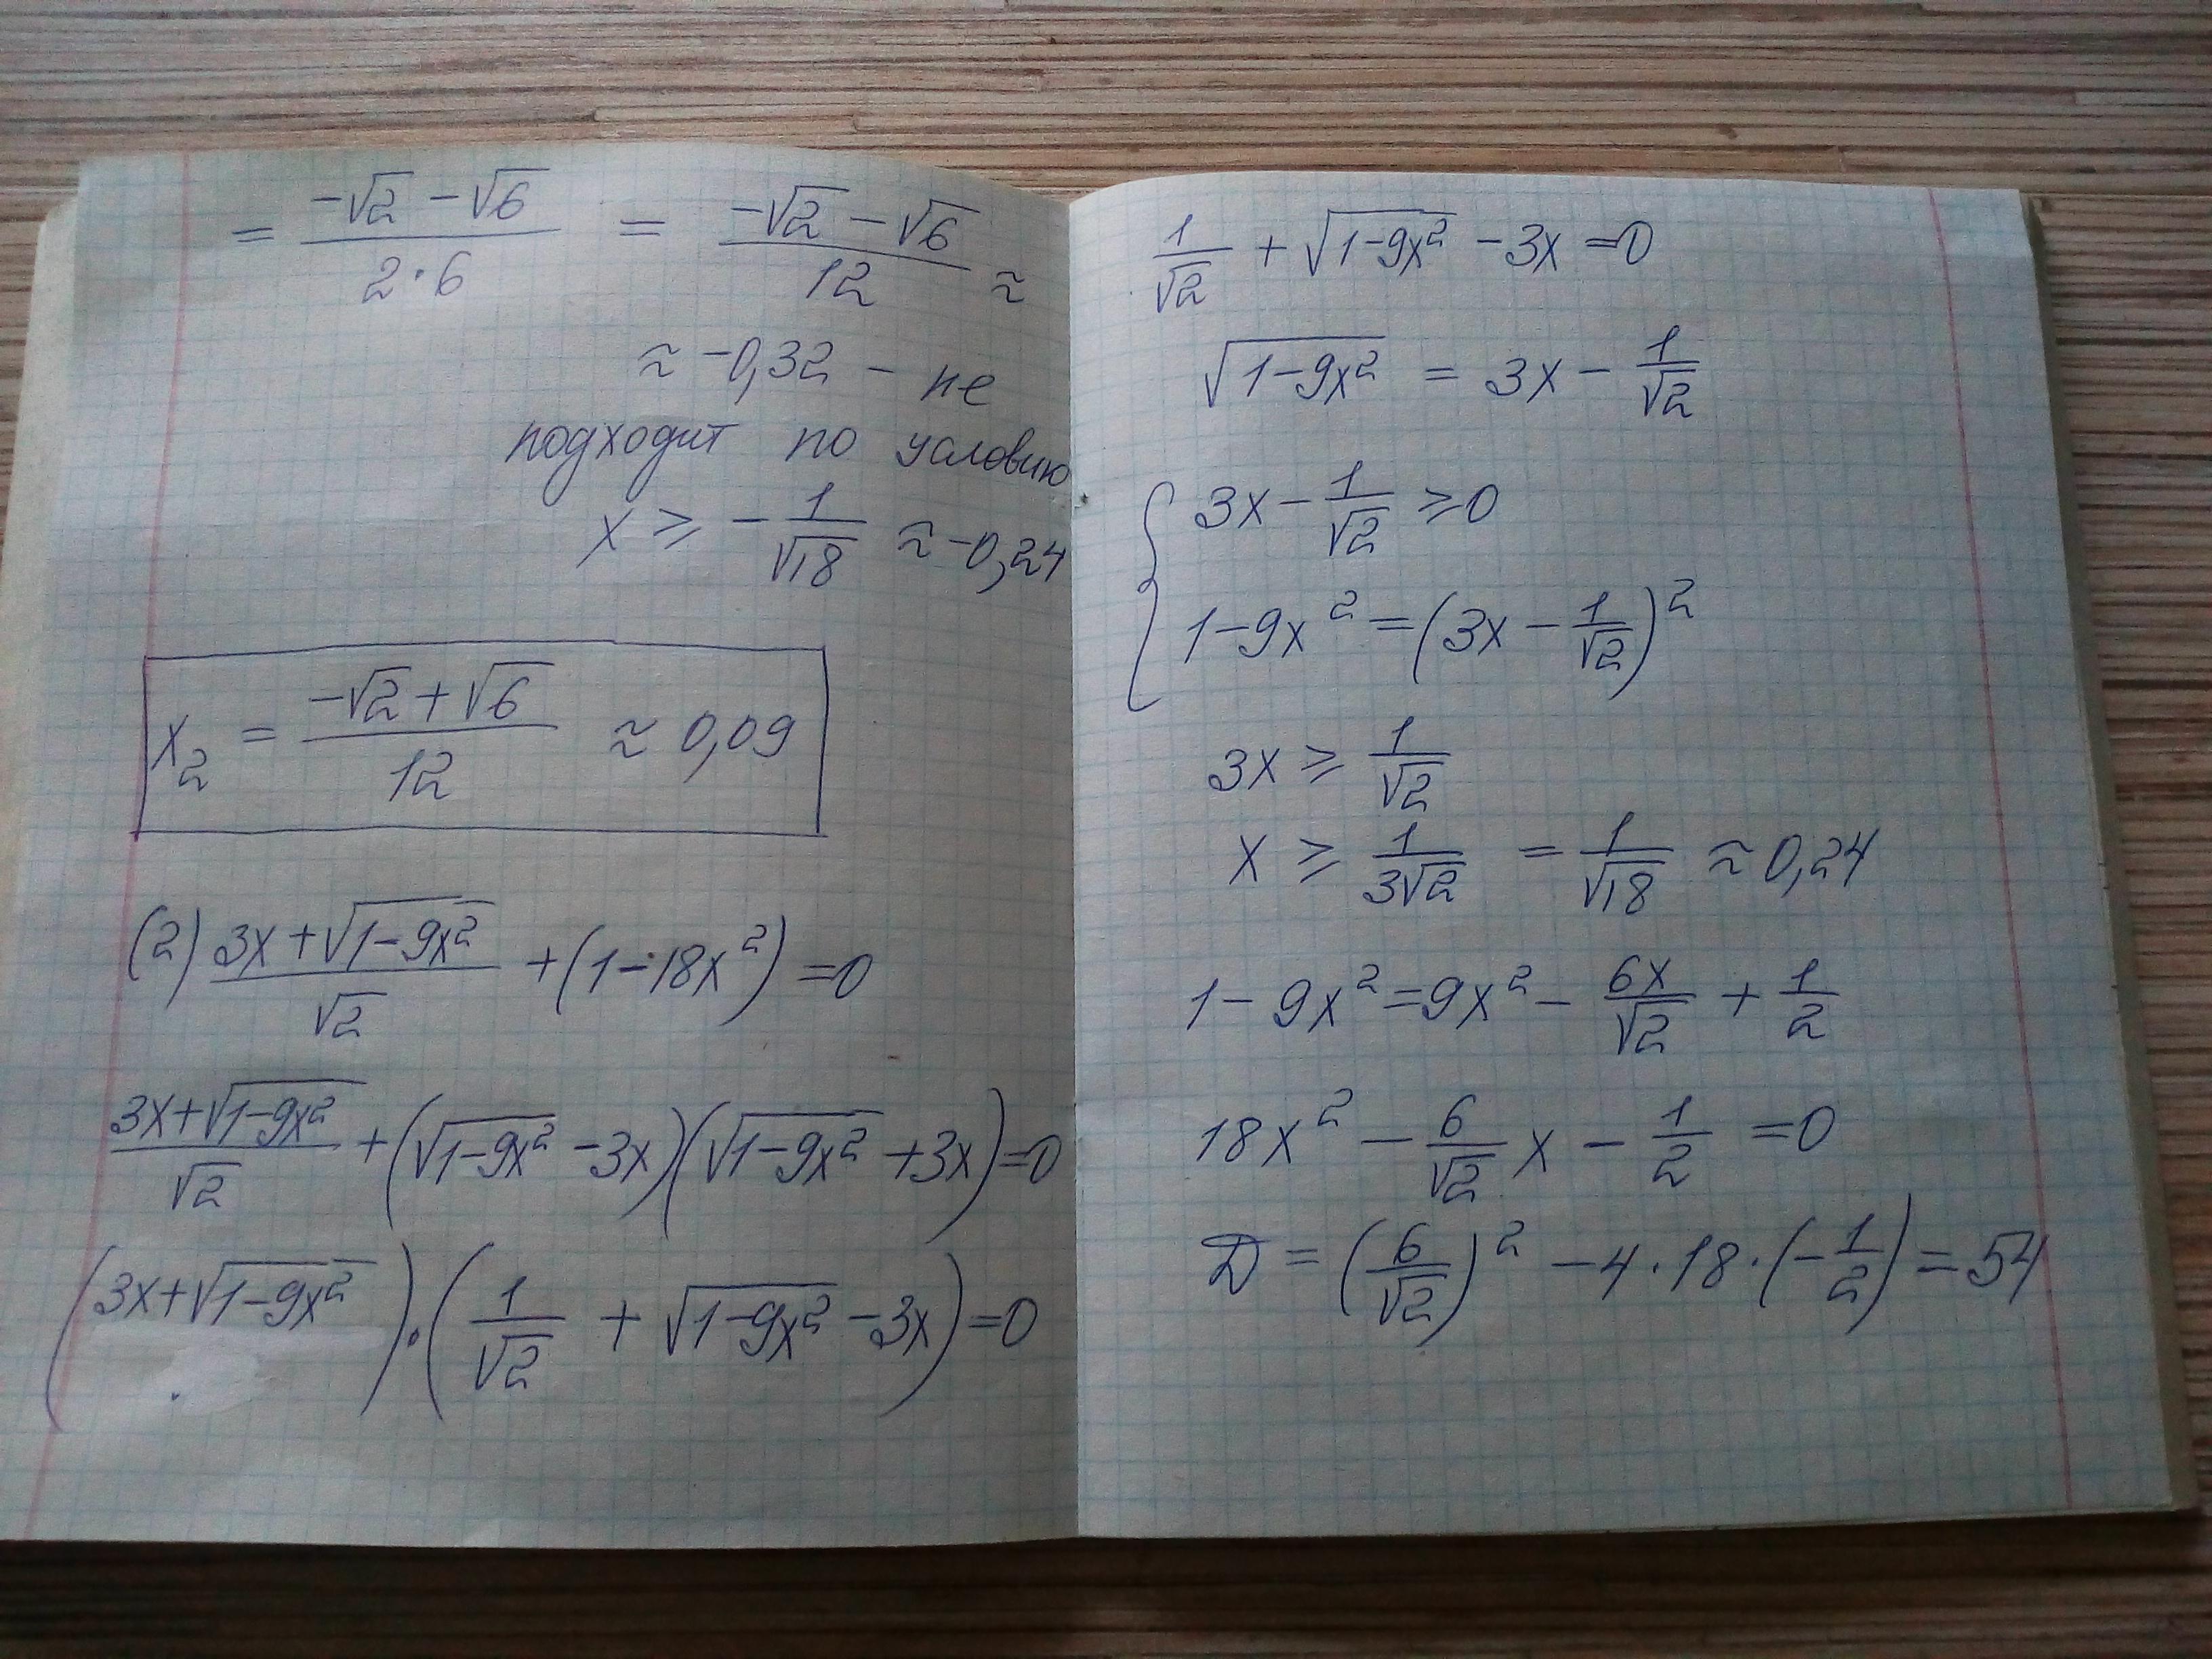 = (-√2 - √6)/(2·6) = (-√2 - √6)/12 ≈
≈ -0,32 - не
подходит по условию
x ≥ - 1/√18 ≈ -0,24
x₂ = (-√2 + √6)/12 ≈ 0,09
(2) (3x + √(1-9x²))/√2 + (1-18x²) = 0
(3x + √(1-9x²))/√2 + (√(1-9x²) - 3x)(√(1-9x²) + 3x) = 0
(3x + √(1-9x²)) · (1/√2 + √(1-9x²) - 3x) = 0
1/√2 + √(1-9x²) - 3x = 0
√(1-9x²) = 3x - 1/√2
{ 3x - 1/√2 ≥ 0
1-9x² = (3x - 1/√2)²
3x ≥ 1/√2
x ≥ 1/(3√2) = 1/√18 ≈ 0,24
1 - 9x² = 9x² - 6x/√2 + 1/2
18x² - 6/√2 x - 1/2 = 0
D = (6/√2)² - 4·18·(-1/2) = 54